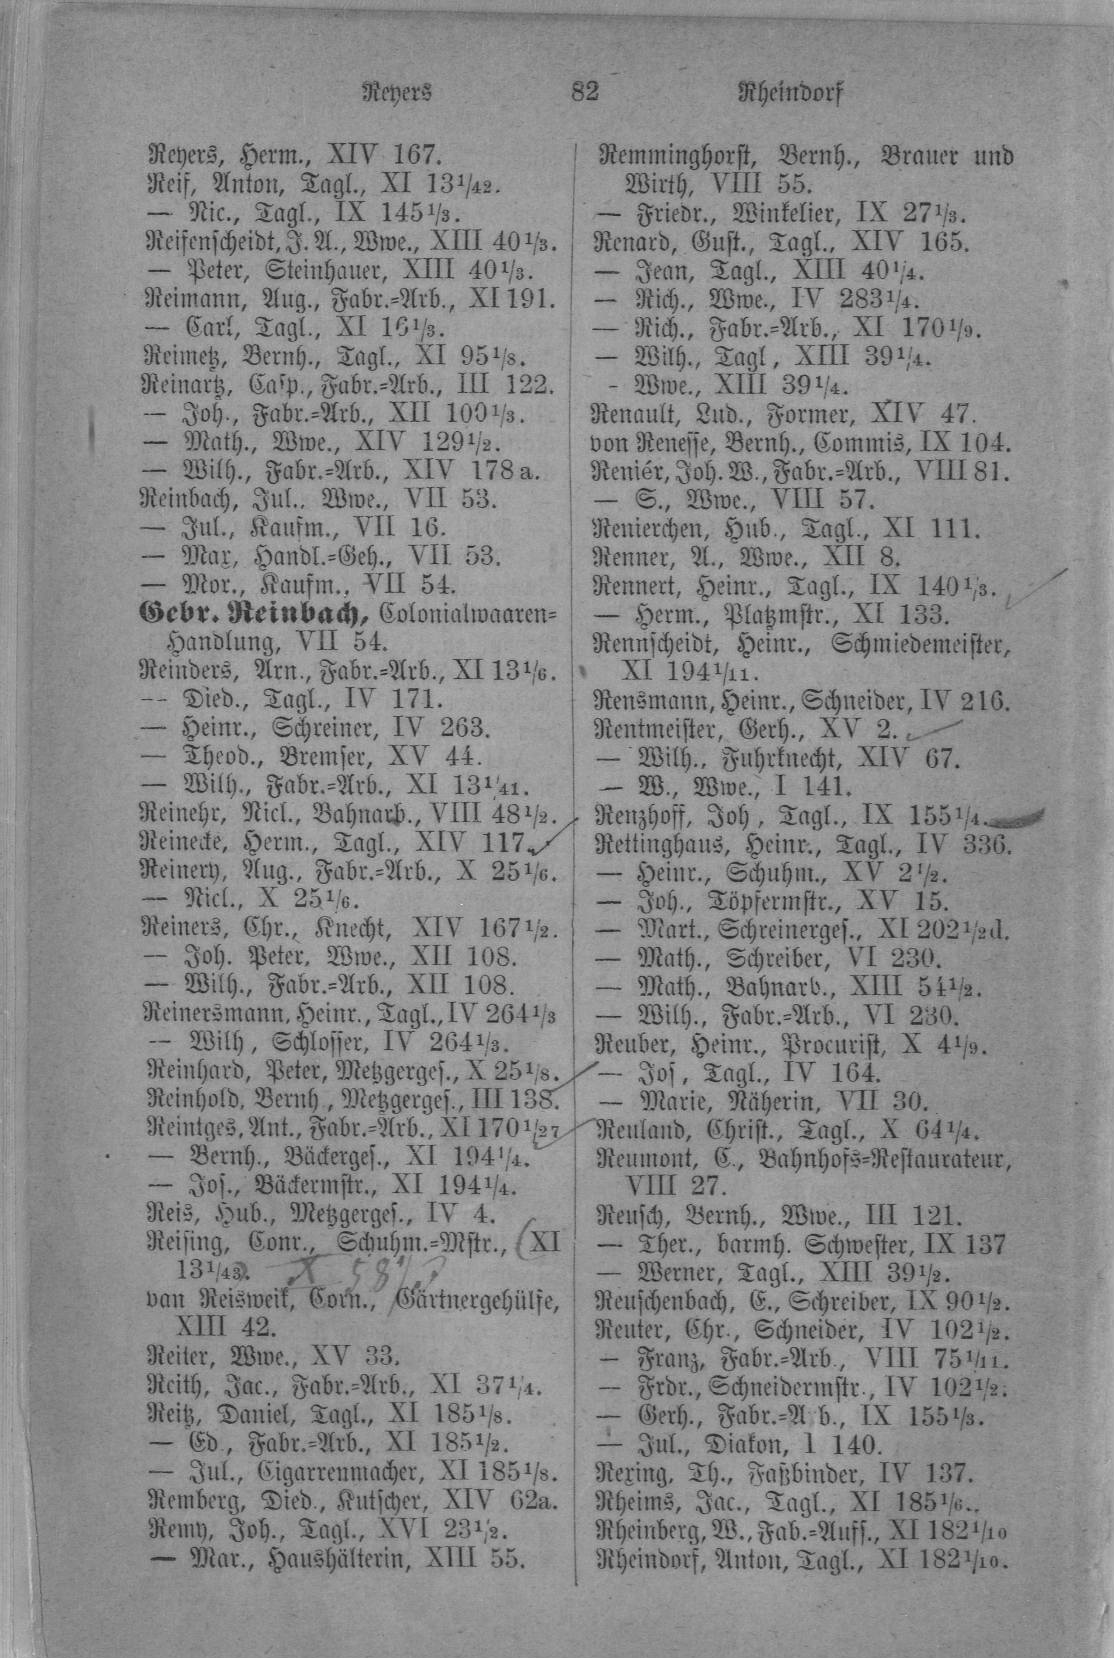 Reyers 82 Rheindorf
Reyers, Herm., XIV 167.
Reif, Anton, Tagl., XI 13 1/42.
— Nic., Tagl., IX 145 1/3.
Reifenscheidt, J. A., Wwe., XIII 40 1/3.
— Peter, Steinhauer, XIII 40 1/3.
Reimann, Aug., Fabr.=Arb., XI 191.
— Carl, Tagl., XI 16 1/3.
Reimetz, Bernh., Tagl., XI 95 1/8.
Reinartz, Casp., Fabr.=Arb., III 122.
— Joh., Fabr.=Arb., XII 109 1/3.
— Math., Wwe., XIV 129 1/2.
— Wilh., Fabr.=Arb., XIV 178 a.
Reinbach, Jul., Wwe., VII 53.
— Jul., Kaufm., VII 16.
— Max, Handl.=Geh., VII 53.
— Mor., Kaufm., VII 54.
Gebr. Reinbach, Colonialwaaren=
Handlung, VII 54.
Reinders, Arn., Fabr.=Arb., XI 13 1/6.
— Died., Tagl., IV 171.
— Heinr., Schreiner, IV 263.
— Theod., Bremser, XV 44.
— Wilh., Fabr.=Arb., XI 13 1/41.
Reinehr, Nicl., Bahnarb., VIII 48 1/2.
Reinecke, Herm., Tagl., XIV 117.
Reinery, Aug., Fabr.=Arb., X 25 1/6.
— Nicl., X 25 1/6.
Reiners, Chr., Knecht, XIV 167 1/2.
— Joh. Peter, Wwe., XII 108.
— Wilh., Fabr.=Arb., XII 108.
Reinersmann, Heinr., Tagl., IV 264 1/3
— Wilh, Schlosser, IV 264 1/3.
Reinhard, Peter, Metzgerges., X 25 1/8.
Reinhold, Bernh., Metzgerges., III 138.
Reintges, Ant., Fabr.=Arb., XI 170 1/27
— Bernh., Bäckerges., XI 194 1/4.
— Jos., Bäckermstr., XI 194 1/4.
Reis, Hub., Metzgerges., IV 4.
Reising, Conr., Schuhm.=Mstr., (XI
13 1/43. X 58 1/3
van Reisweik, Corn., Gärtnergehülfe,
XIII 42.
Reiter, Wwe., XV 33.
Reith, Jac., Fabr.=Arb., XI 37 1/4.
Reitz, Daniel, Tagl., XI 185 1/8.
— Ed., Fabr.=Arb., XI 185 1/2.
— Jul., Cigarrenmacher, XI 185 1/8.
Remberg, Died., Kutscher, XIV 62a.
Remy, Joh., Tagl., XVI 23 1/2.
— Mar., Haushälterin, XIII 55.
Remminghorst, Bernh., Brauer und
Wirth, VIII 55.
— Friedr., Winkelier, IX 27 1/3.
Renard, Gust., Tagl., XIV 165.
— Jean, Tagl., XIII 40 1/4.
— Rich., Wwe., IV 283 1/4.
— Rich., Fabr.=Arb., XI 170 1/9.
— Wilh., Tagl, XIII 39 1/4.
- Wwe., XIII 39 1/4.
Renault, Lud., Former, XIV 47.
von Renesse, Bernh., Commis, IX 104.
Reniér, Joh. W., Fabr.=Arb., VIII 81.
— S., Wwe., VIII 57.
Renierchen, Hub., Tagl., XI 111.
Renner, A., Wwe., XII 8.
Rennert, Heinr., Tagl., IX 140 1/3.
— Herm., Platzmstr., XI 133.
Rennscheidt, Heinr., Schmiedemeister,
XI 194 1/11.
Rensmann, Heinr., Schneider, IV 216.
Rentmeister, Gerh., XV 2.
— Wilh., Fuhrknecht, XIV 67.
— W., Wwe., I 141.
Renzhoff, Joh, Tagl., IX 155 1/4.
Rettinghaus, Heinr., Tagl., IV 336.
— Heinr., Schuhm., XV 2 1/2.
— Joh., Töpfermstr., XV 15.
— Mart., Schreinerges., XI 202 1/2 d.
— Math., Schreiber, VI 230.
— Math., Bahnarb., XIII 54 1/2.
— Wilh., Fabr.=Arb., VI 230.
Reuber, Heinr., Procurist, X 4 1/9.
— Jos, Tagl., IV 164.
— Marie, Näherin, VII 30.
Reuland, Christ., Tagl., X 64 1/4.
Reumont, C., Bahnhofs=Restaurateur,
VIII 27.
Reusch, Bernh., Wwe., III 121.
— Ther., barmh. Schwester, IX 137
— Werner, Tagl., XIII 39 1/2.
Reuschenbach, E., Schreiber, IX 90 1/2.
Reuter, Chr., Schneider, IV 102 1/2.
— Franz, Fabr.=Arb., VIII 75 1/11.
— Frdr., Schneidermstr., IV 102 1/2.
— Gerh., Fabr.=A b., IX 155 1/3.
— Jul., Diakon, I 140.
Rexing, Th., Faßbinder, IV 137.
Rheims, Jac., Tagl., XI 185 1/6.
Rheinberg, W., Fab.=Auff., XI 182 1/10
Rheindorf, Anton, Tagl., XI 182 1/10.